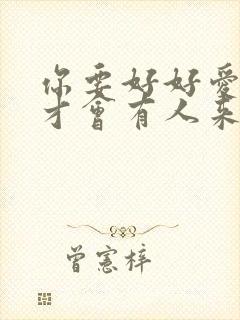 你要好好愛
才會有人來
曾憲梓